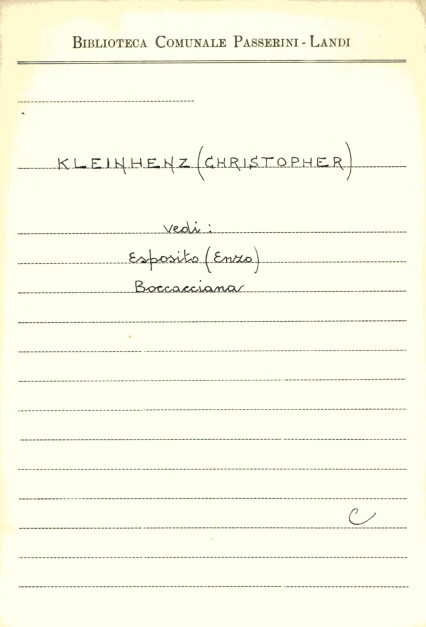 BIBLIOTECA COMUNALE PASSERINI - LANDI
KLEINHENZ (CHRISTOPHER)
vedi :
Esposito (Enzo)
Boccacciana
C